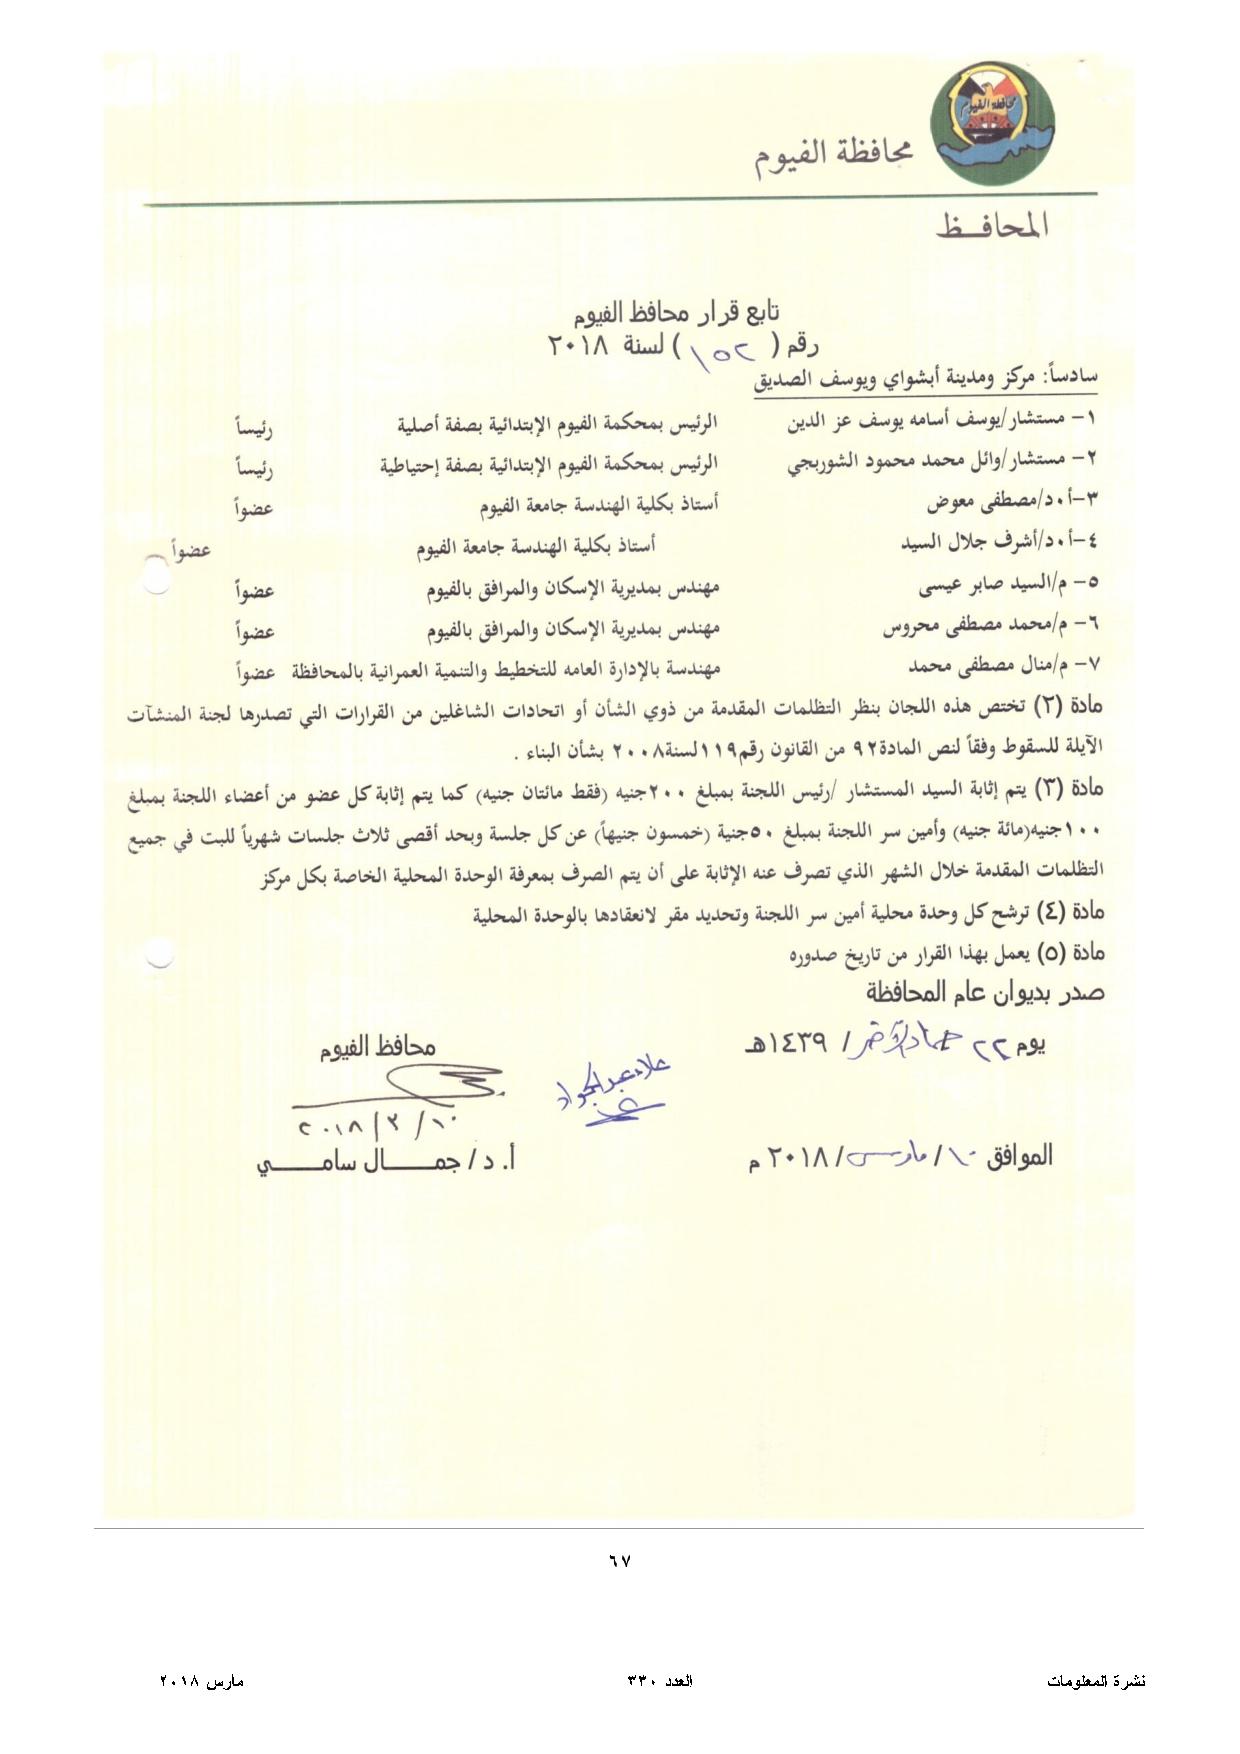 محافظة الفيوم
محافظة الفيوم
المحافـــظ
تابع قرار محافظ الفيوم
رقم ( ١٥٢ ) لسنة ٢٠١٨
سادساً: مركز ومدينة أبشواي ويوسف الصديق
١- مستشار/يوسف أسامه يوسف عز الدين الرئيس بمحكمة الفيوم الإبتدائية بصفة أصلية رئيساً
٢- مستشار/وائل محمد محمود الشوربجي الرئيس بمحكمة الفيوم الإبتدائية بصفة إحتياطية رئيساً
٣-أ٠د/مصطفى معوض أستاذ بكلية الهندسة جامعة الفيوم عضواً
٤-أ٠د/أشرف جلال السيد أستاذ بكلية الهندسة جامعة الفيوم عضواً
٥- م/السيد صابر عيسى مهندس بمديرية الإسكان والمرافق بالفيوم عضواً
٦- م/محمد مصطفى محروس مهندس بمديرية الإسكان والمرافق بالفيوم عضواً
٧- م/منال مصطفى محمد مهندسة بالإدارة العامه للتخطيط والتنمية العمرانية بالمحافظة عضواً
مادة (٢) تختص هذه اللجان بنظر التظلمات المقدمة من ذوي الشأن أو اتحادات الشاغلين من القرارات التي تصدرها لجنة المنشآت
الآيلة للسقوط وفقاً لنص المادة٩٢ من القانون رقم١١٩لسنة٢٠٠٨ بشأن البناء .
مادة (٣) يتم إثابة السيد المستشار /رئيس اللجنة بمبلغ ٢٠٠جنيه (فقط مائتان جنيه) كما يتم إثابة كل عضو من أعضاء اللجنة بمبلغ
١٠٠جنيه(مائة جنيه) وأمين سر اللجنة بمبلغ ٥٠جنية (خمسون جنيهاً) عن كل جلسة وبحد أقصى ثلاث جلسات شهرياً للبت في جميع
التظلمات المقدمة خلال الشهر الذي تصرف عنه الإثابة على أن يتم الصرف بمعرفة الوحدة المحلية الخاصة بكل مركز
مادة (٤) ترشح كل وحدة محلية أمين سر اللجنة وتحديد مقر لانعقادها بالوحدة المحلية
مادة (٥) يعمل بهذا القرار من تاريخ صدوره
صدر بديوان عام المحافظة
يوم ٢٢ جماد الآخر / ١٤٣٩هـ
محافظ الفيوم
علاء عبد الجواد
٢٠١٨/٣/١٠
الموافق ١٠/ مارس /٢٠١٨ م
أ. د/ جمـــــال سامـــــي
٦٧
نشرة المعلومات العدد ٣٣٠ مارس ٢٠١٨